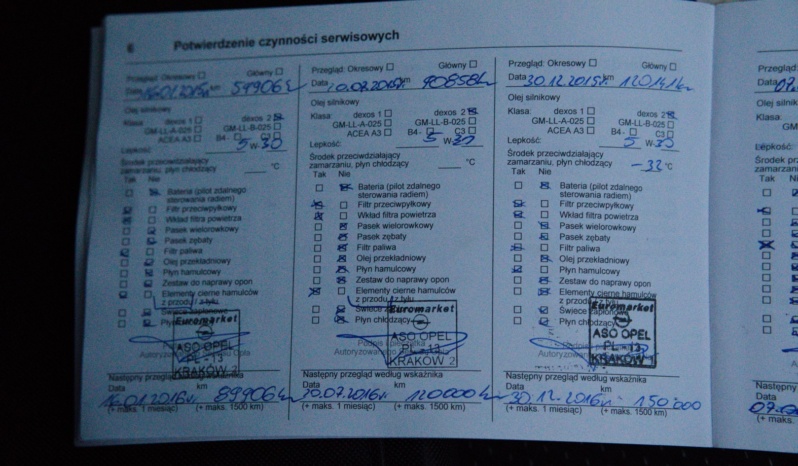 6 Potwierdzenie czynności serwisowych
Przegląd: Okresowy ☐ Główny ☐
Data 16.01.2015r. km 59906
Olej silnikowy
Klasa: dexos 1 ☐ dexos 2 ☒
GM-LL-A-025 ☐ GM-LL-B-025 ☐
ACEA A3 ☐ B4- ☐ C3 ☐
Lepkość: 5 W-30
Środek przeciwdziałający
zamarzaniu, płyn chłodzący °C
Tak Nie
Bateria (pilot zdalnego
sterowania radiem)
Filtr przeciwpyłkowy
Wkład filtra powietrza
Pasek wielorowkowy
Pasek zębaty
Filtr paliwa
Olej przekładniowy
Płyn hamulcowy
Zestaw do naprawy opon
Elementy cierne hamulców
z przodu / z tyłu
Świece zapłonowe
Euromarket
ASO OPEL
PL - 13
KRAKÓW 2
Następny przegląd według wskaźnika
Data km
16.01.2016r. 89906
(+ maks. 1 miesiąc) (+ maks. 1500 km)
Przegląd: Okresowy ☐ Główny ☐
Data km 90858
Olej silnikowy
Klasa: dexos 1 ☐ dexos 2 ☒
GM-LL-A-025 ☐ GM-LL-B-025 ☐
ACEA A3 ☐ B4- ☐ C3 ☐
Lepkość: 5 W-30
Środek przeciwdziałający
zamarzaniu, płyn chłodzący °C
Tak Nie
Bateria (pilot zdalnego
sterowania radiem)
Filtr przeciwpyłkowy
Wkład filtra powietrza
Pasek wielorowkowy
Pasek zębaty
Filtr paliwa
Olej przekładniowy
Płyn hamulcowy
Zestaw do naprawy opon
Elementy cierne hamulców
z przodu / z tyłu
Świece
Płyn chłodzący
Euromarket
ASO OPEL
PL - 13
KRAKÓW 2
Następny przegląd według wskaźnika
Data km
10.07.2016r. 120000
(+ maks. 1 miesiąc) (+ maks. 1500 km)
Przegląd: Okresowy ☐ Główny ☐
Data 30.12.2015r. km
Olej silnikowy
Klasa: dexos 1 ☐ dexos 2 ☒
GM-LL-A-025 ☐ GM-LL-B-025 ☐
ACEA A3 ☐ B4- ☐ C3 ☐
Lepkość: 5 W-30
Środek przeciwdziałający
zamarzaniu, płyn chłodzący -33 °C
Tak Nie
Bateria (pilot zdalnego
sterowania radiem)
Filtr przeciwpyłkowy
Wkład filtra powietrza
Pasek wielorowkowy
Pasek zębaty
Filtr paliwa
Olej przekładniowy
Płyn hamulcowy
Zestaw do naprawy opon
Elementy cierne hamulców
z przodu / z tyłu
Świece zapłonowe
Płyn chłodzący
Euromarket
ASO OPEL
PL - 13
KRAKÓW
Następny przegląd według wskaźnika
Data km
30.12.2016r. 150.000
(+ maks. 1 miesiąc) (+ maks. 1500 km)
Data
Olej silnik
Klasa:
Lepkość:
Tak
Następny
Data
(+ maks.